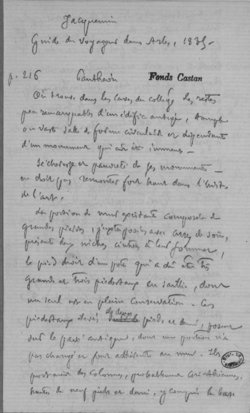 Jacquemin
Guide du voyageur dans Arles, 1835.
p. 216 Panthéon Fonds Castan
On trouve dans les caves du collège les restes
peu remarquables d'un édifice antique,
vaste salle de forme circulaire et dépendant
d'un monument qui a été immense.
et pauvreté de ses ornements
ne doit pas remonter fort haut dans l'histoire
de l'art.
La portion de mur existant composée de
grandes pierres, juxtaposées avec assez de soin,
présente des niches cintrées à leur sommet,
le pied droit d'une porte qui a dû être très
grande et trois piédestaux en saillie, dont
un seul est en pleine conservation. Ces
piédestaux de six pieds, et demi, posent
sur le pavé antique, dont une portion n'a
pas changé et fort adhérente au mur. Ils
portaient des colonnes, probablement corinthiennes,
hautes de neuf pieds et demi, y compris la base